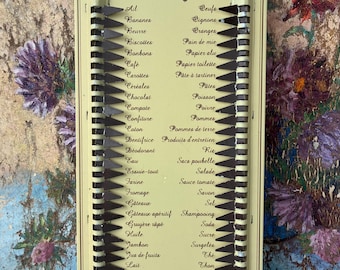 Ail
Bananes
Beurre
Biscottes
Bonbons
Café
Carottes
Céréales
Chocolat
Compote
Confiture
Coton
Dentifrice
Déodorant
Eau
Essuie-tout
Farine
Fromage
Gâteaux
Gâteaux apéritif
Gruyère râpé
Huile
Jambon
Jus de fruits
Lait
Oeufs
Oignons
Oranges
Pain de mie
Papier alu
Papier toilette
Pâte à tartiner
Pâtes
Poisson
Poivre
Pommes
Pommes de terre
Produits d'entretien
Riz
Sacs poubelle
Salade
Sauce tomate
Savon
Sel
Shampooing
Soda
Sucre
Surgelés
Thé
Thon